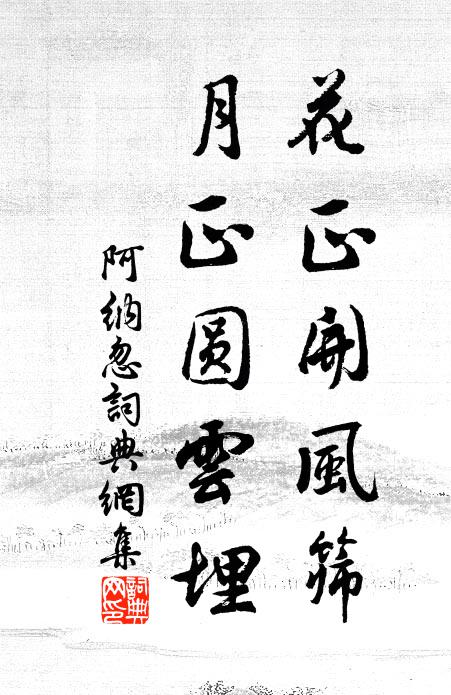 花正開風筛
月正圆雲埋
阿納忽詞典網集
詞典网印